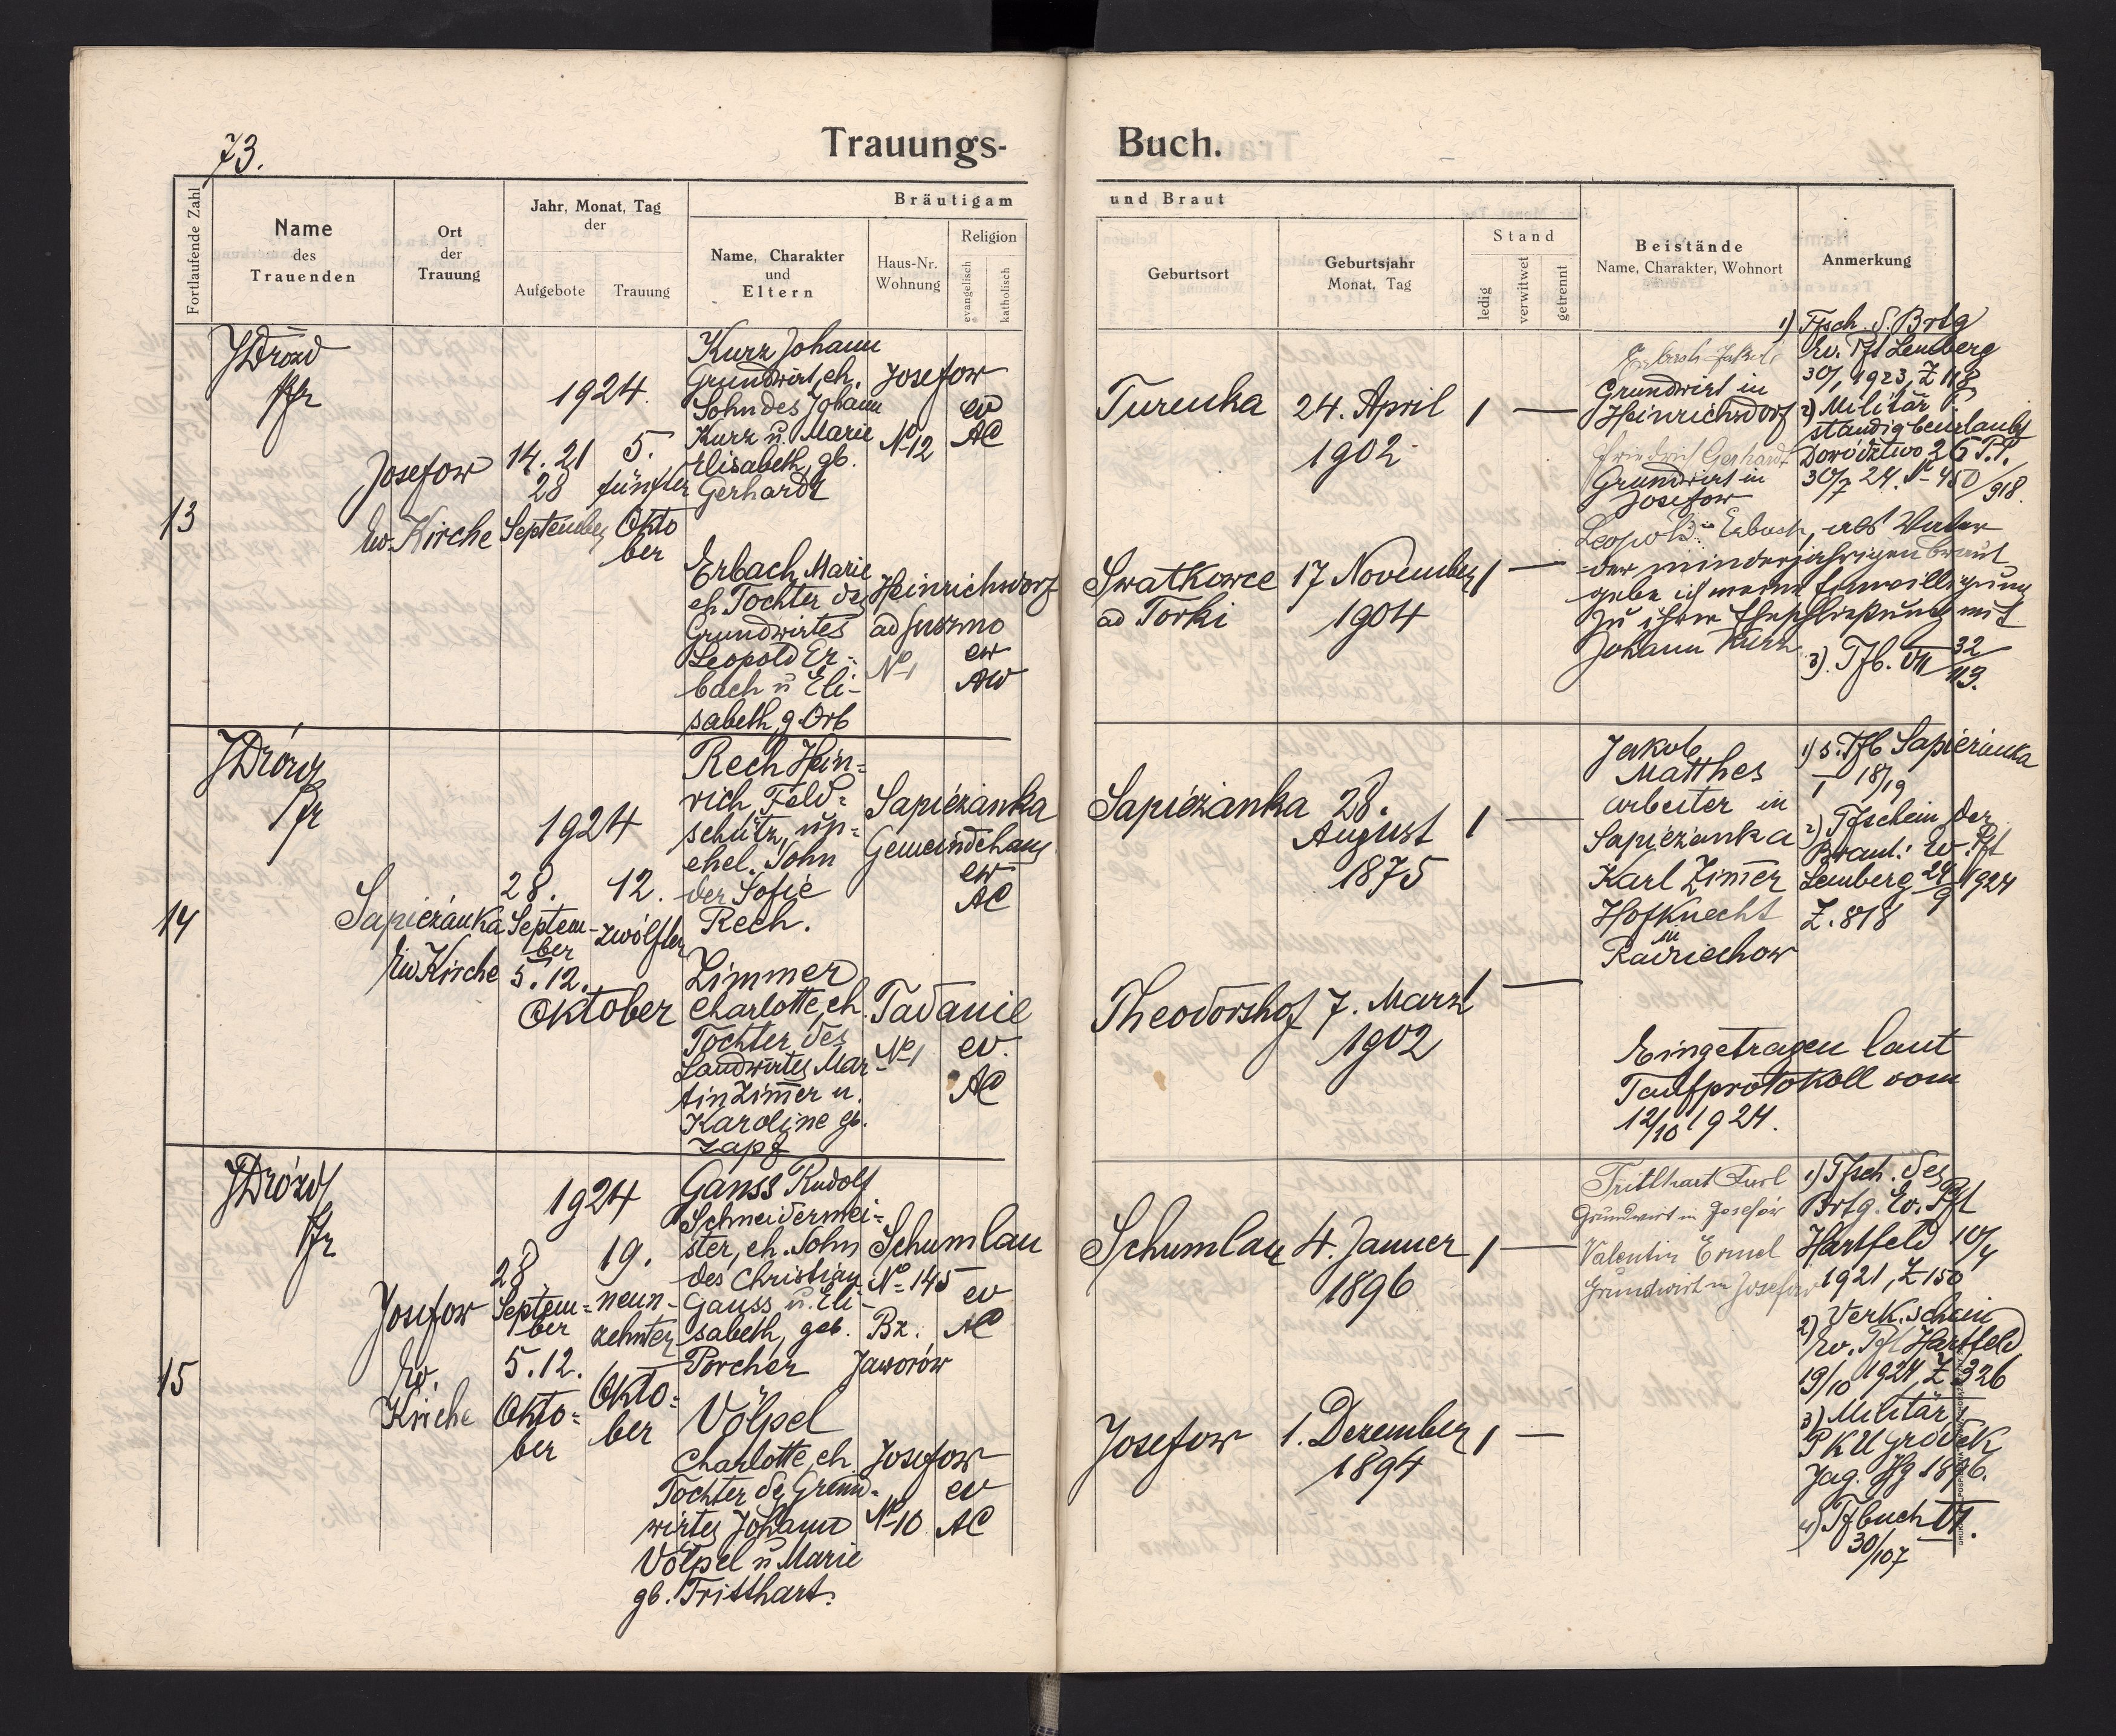 73.
Trauungs-
Buch.
Fortlaufende Zahl
Name
des
Trauenden
Ort
der
Trauung
Jahr, Monat, Tag
der
Aufgebote
Trauung
Bräutigam
Name, Charakter
und
Eltern
Haus-Nr.
Wohnung
Religion
evangelisch
katholisch
und Braut
Geburtsort
Geburtsjahr
Monat, Tag
Stand
ledig
verwitwet
getrennt
Beistände
Name, Charakter, Wohnort
Anmerkung
13
JDrozd
Pfr
Josefow
Ev. Kirche
1924
14. 21
28
September
5.
fünfter
Okto
ber
Kurz Johann
Grundwirt, eh.
Sohn des Johann
Kurz u. Marie
Elisabeth, gb.
Gerhardt
Josefow
No 12
ev
AC
Turenka
24. April
1902
1 —
Erbach Jakob
Grundwirt in
Heinrichsdorf
Friedrich Gerhardt
Grundwirt in
Josefow
1) Tfsch. d. Brtg
Ev. Pft Lemberg
1923, Z 118
2) Militär
ständig beurlaubt
Dowództwo 26 P.P.
30/7 24. No 450/918.
Erbach, Marie
eh Tochter des
Grundwirtes
Leopold Er-
bach u Eli-
sabeth, g. Orb
Heinrichsdorf
ad
No 1
ew
AW
Swatkowce
ad Torki
17 November
1904
1 —
Leopold Erbach, als Vater
der minderjährigen Braut
gebe ich meine Einwilligung
zu ihrer Eheschließung mit
Johann Kurz
3) Tfb. VII 32/113.
14
JDrozd
Pfr
Sapieżanka
Ev Kirche
1924
28.
Septem-
ber
5. 12.
Oktober
12.
zwölfter
Rech Hein=
rich, Feld=
schütz, un=
ehel. Sohn
der Sofie
Rech.
Sapieżanka
Gemeindehaus
ew
AC
Sapieżanka
28.
August
1875
1 —
Jakob
Matthes
arbeiter in
Sapieżanka
Karl Zimmer
Hofknecht
in
Radziechow
1) s. Tfb Sapieżanka
I 18/19
2) Tfschein der
Braut: Ev. Pft
Lemberg 24/9 1924
Z. 818
Zimmer
Charlotte, eh.
Tochter des
Landwirtes Mar-
tin Zimmer u.
Karoline gb.
Zapf
Tadanie
No 1
ev.
AC
Theodorshof
7. März
1902
1 —
Eingetragen laut
Taufprotokoll vom
12/10 1924.
15
JDrozd
Pfr
Josefow
Ev.
Kirche
1924
28
Septem=
ber
5. 12.
Okto=
ber
19.
neun-
zehnter
Okto=
ber
Ganss Rudolf
Schneidermei=
ster, eh. Sohn
des Christian
Ganss u. Eli-
sabeth, geb.
Porcher
Schumlau
No 145
Bz.
Jaworów
ev
AC
Schumlau
4. Januer
1896
1 —
Tritthart Karl
Grundwirt in Josefów
Valentin Ermel
Grundwirt in Josefow
1) Tfsch. des
Brtg. Ev. Pft
Hartfeld 10/4
1921, Z 150
2) Verk. schein
Ev. Pft Hartfeld
19/10 1924, Z 326
3) Militär
PKU Gródek
Jag. Jg 1896.
4) Tfbuch VI.
30/107
Völpel
Charlotte, eh
Tochter des Grund-
wirtes Johann
Völpel u Marie
gb. Tritthart.
Josefow
No 10
ev
AC
Josefow
1. Dezember
1894
1 —